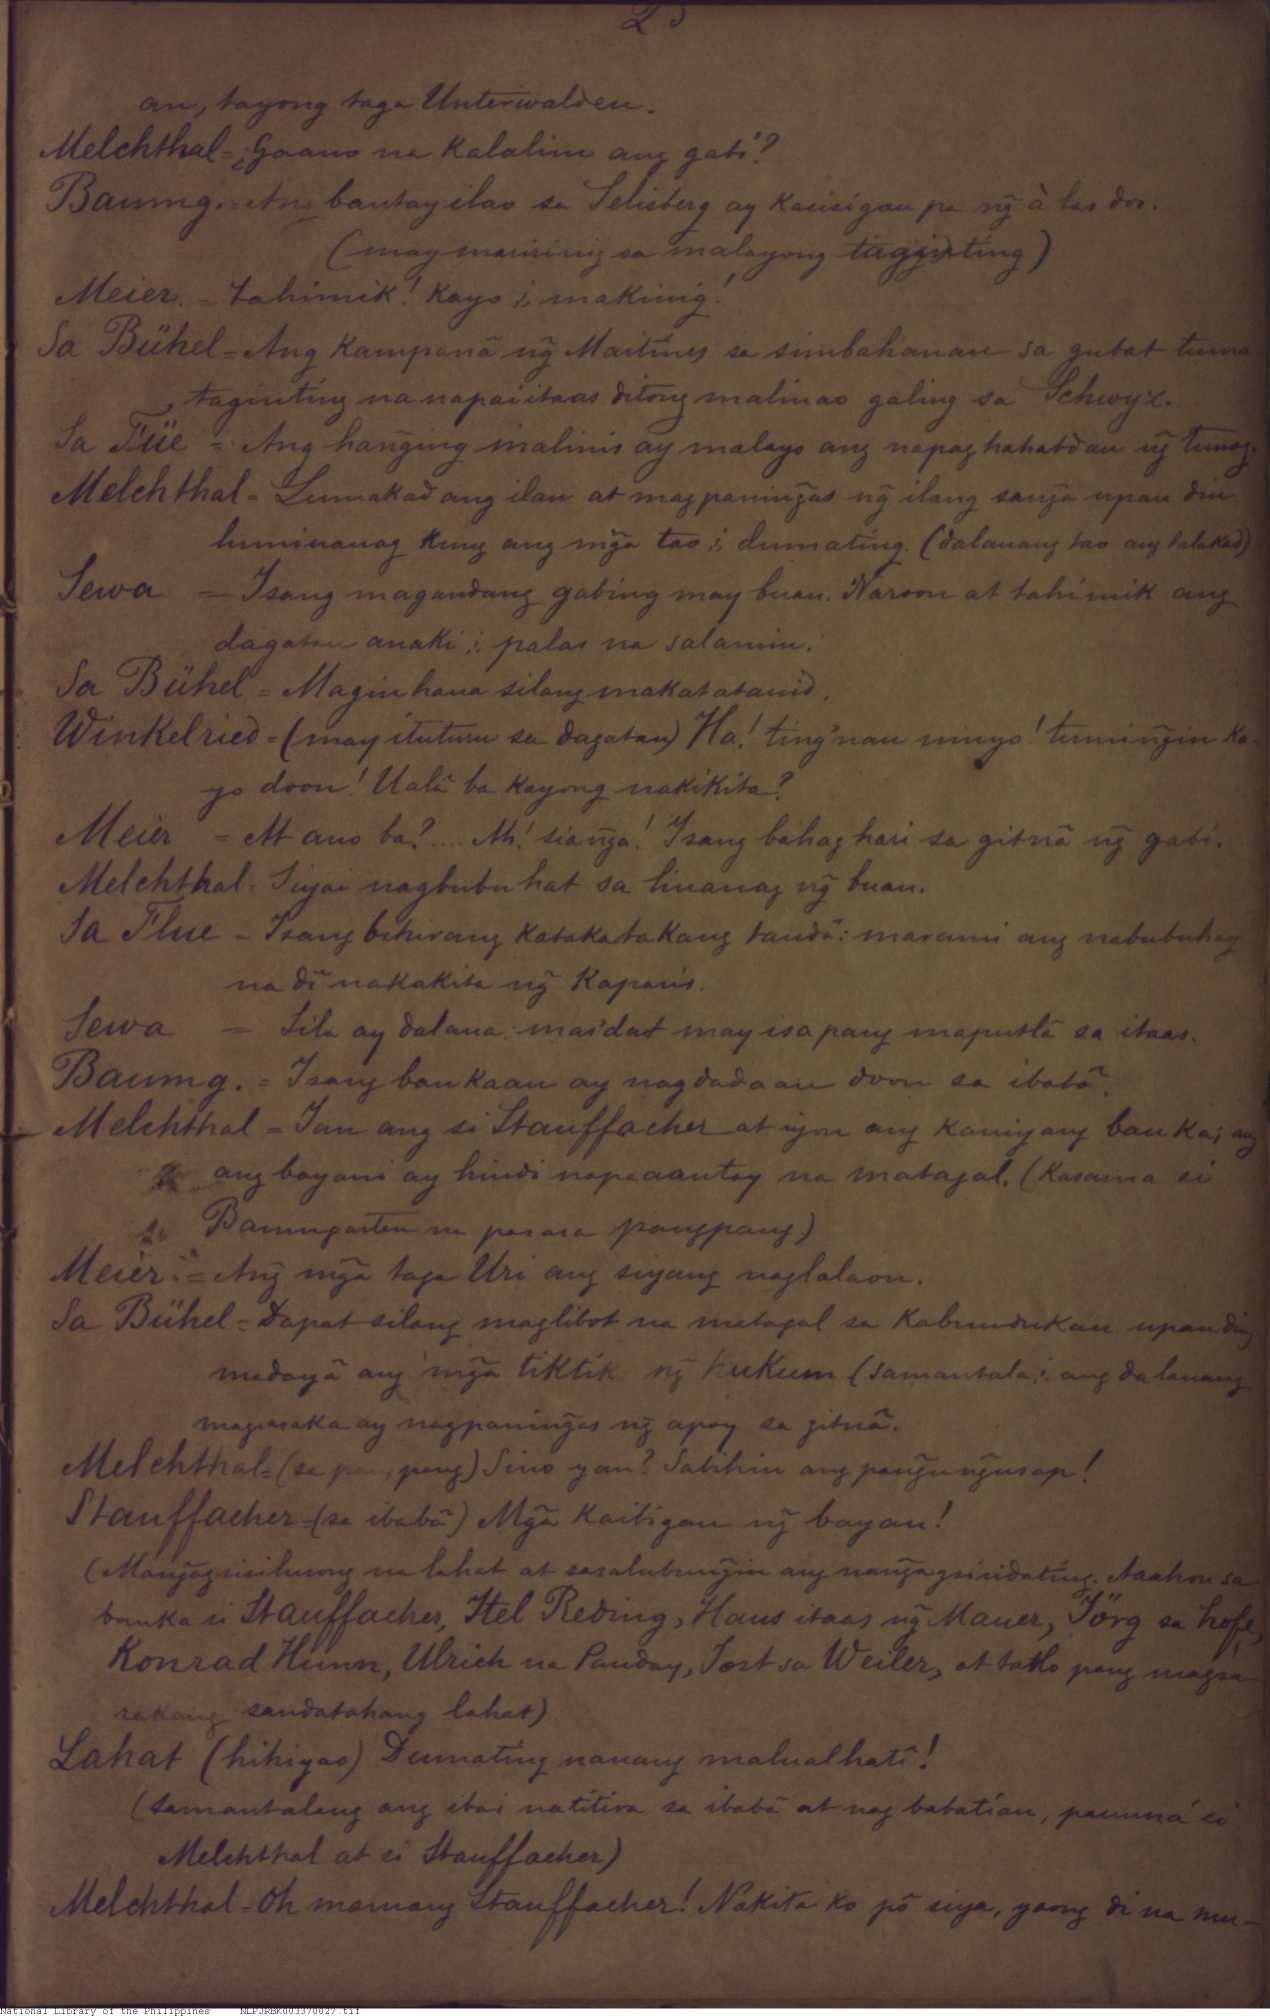 25
an, tayong taga Unterwalden.
Melchthal = ¿Gaano na kalalim ang gabí?
Baumg. = Ang bantay ilao sa Selisberg ay kasisigau pa ng̃ à las dos.
(may maririnig sa malayong taginting)
Meier. = Tahimik! Kayo i, makinig!
Sa Bühel = Ang kampanã ng̃ Maitines sa simbahanan sa gubat tuma
taginting na napaiitaas ditong malinao galing sa Schwyz.
Sa Flüe = Ang hang̃ing malinis ay malayo ang napaghahatdan ng̃ tunog.
Melchthal = Lumakad ang ilan at magpaning̃as ng̃ ilang sang̃a upan din
luminanag kung ang mg̃a tao i, dumating. (dalauang tao ang lalakad)
Sewa = Isang magandang gabing may buan. Naroon at tahimik ang
dagatan anaki i, palas na salamin.
Sa Bühel = Maginhaua silang makatatauid.
Winkelried = (may ituturu sa dagatan) Ha! ting'nan ninyo! tuming̃in ka-
yo doon! Ualã ba kayong nakikita?
Meier = At ano ba?.... Ah! siang̃a! Isang bahaghari sa gitnã ng̃ gabi.
Melchthal. Siyai nagbubuhat sa linanag ng̃ buan.
Sa Flue = Isang bihirang katakatakang tandã: marami ang nabubuhay
na dĩ nakakita ng̃ kaparis.
Sewa = Sila ay dalaua: mas'dat may isa pang maputlã sa itaas.
Baumg. = Isang bankaan ay nagdadaan doon sa ibabã.
Melchthal = Ian ang si Stauffacher at iyon ang kaniyang banka; ang
ang bayani ay hindi napaaantay na matagal. (Kasama si
Baumgarten na pasasa pangpang)
Meier. = Ang̃ mg̃a taga Uri ang siyang naglalaon.
Sa Bühel = Dapat silang maglibot na matagal sa kabundukan upanding
madayã ang mg̃a tiktik ng̃ hukum (samantala i, ang dalauang
magsasaka ay nagpaning̃as ng̃ apoy sa gitnã.
Melchthal = (sa pangpang) Sino yan? Sabihin ang pang̃ung̃usap!
Stauffacher = (sa ibabã) Mg̃a kaibigan ng̃ bayan!
(Mang̃agsisilusong na lahat at sasalubung̃in ang nang̃agsisidating. Aaahon sa
banka si Stauffacher, Itel Reding, Hans itaas ng̃ Mauer, Jörg sa hofe,
Konrad Hunn, Ulrich na Panday, Jost sa Weiler, at tatlo pang magsa
sakang sandatahang lahat)
Lahat (hihiyao) Dumating nauang malualhatĩ!
(samantalang ang ibai natitira sa ibabã at nagbabatian, pauuná si
Melchthal at si Stauffacher)
Melchthal = Oh mamang Stauffacher! Nakita ko põ siya, yaong di na mu-
National Library of the Philippines NLPJRBK003370027.tif